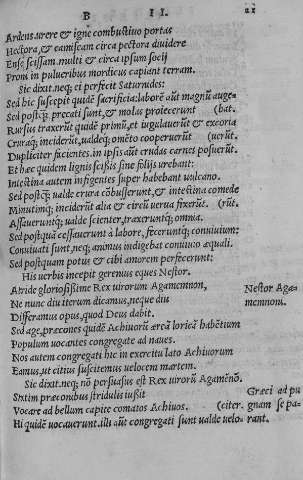 B II. 21
Ardens urere & igne combustiuo portas
Hectorea, & camiseam circa pectora diuidere
Ense scissam. multi & circa ipsum socij
Proni in pulueribus mordicus capiant terram.
Sic dixit. neq; ei perfecit Saturnides:
Sed hic suscepit quidē sacrificia: laborē aūt magnū auge-
Sed postq̄ precati sunt, & molas proiecerunt (bat.
Rursus traxerūt quidē primū, et iugulauerūt & excoria
Cruraq; inciderūt, ualdeq; omēto cooperuerūt (uerūt.
Dupliciter facientes. in ipsis aūt crudas carnes posuerūt.
Et hæc quidem lignis scissis sine folijs urebant:
Intestina autem infigentes super habebant uulcano.
Sed postq̄ ualde crura cōbusserunt, & intestina comede
Minutimq; inciderūt alia & circū uerua fixerūt. (rūt.
Assaueruntq; ualde scienter, traxeruntq; omnia.
Sed postquā cessauerunt à labore, feceruntq; conuiuium:
Conuiuati sunt, neq; animus indigebat conuiuio æquali.
Sed postquam potus & cibi amorem perfecerunt:
His uerbis incepit gerenius eques Nestor.
Atride gloriosissime Rex uirorum Agamemnon, Nestor Aga-
Ne nunc diu iterum dicamus, neque diu memnoni.
Differamus opus, quod Deus dabit.
Sed age, præcones quidē Achiuorū ærea loricā habētium
Populum uocantes congregate ad naues.
Nos autem congregati hic in exercitu lato Achiuorum
Eamus, ut citius suscitemus uelocem martem.
Sic dixit. neq; nō persuasus est Rex uirorū Agamēnō.
Statim præconibus stridulis iußit Græci ad pu
Vocare ad bellum capite comatos Achiuos. (citer. gnam se pa-
Hi quidē uocauerunt. illi aūt congregati sunt ualde uelo- rant.